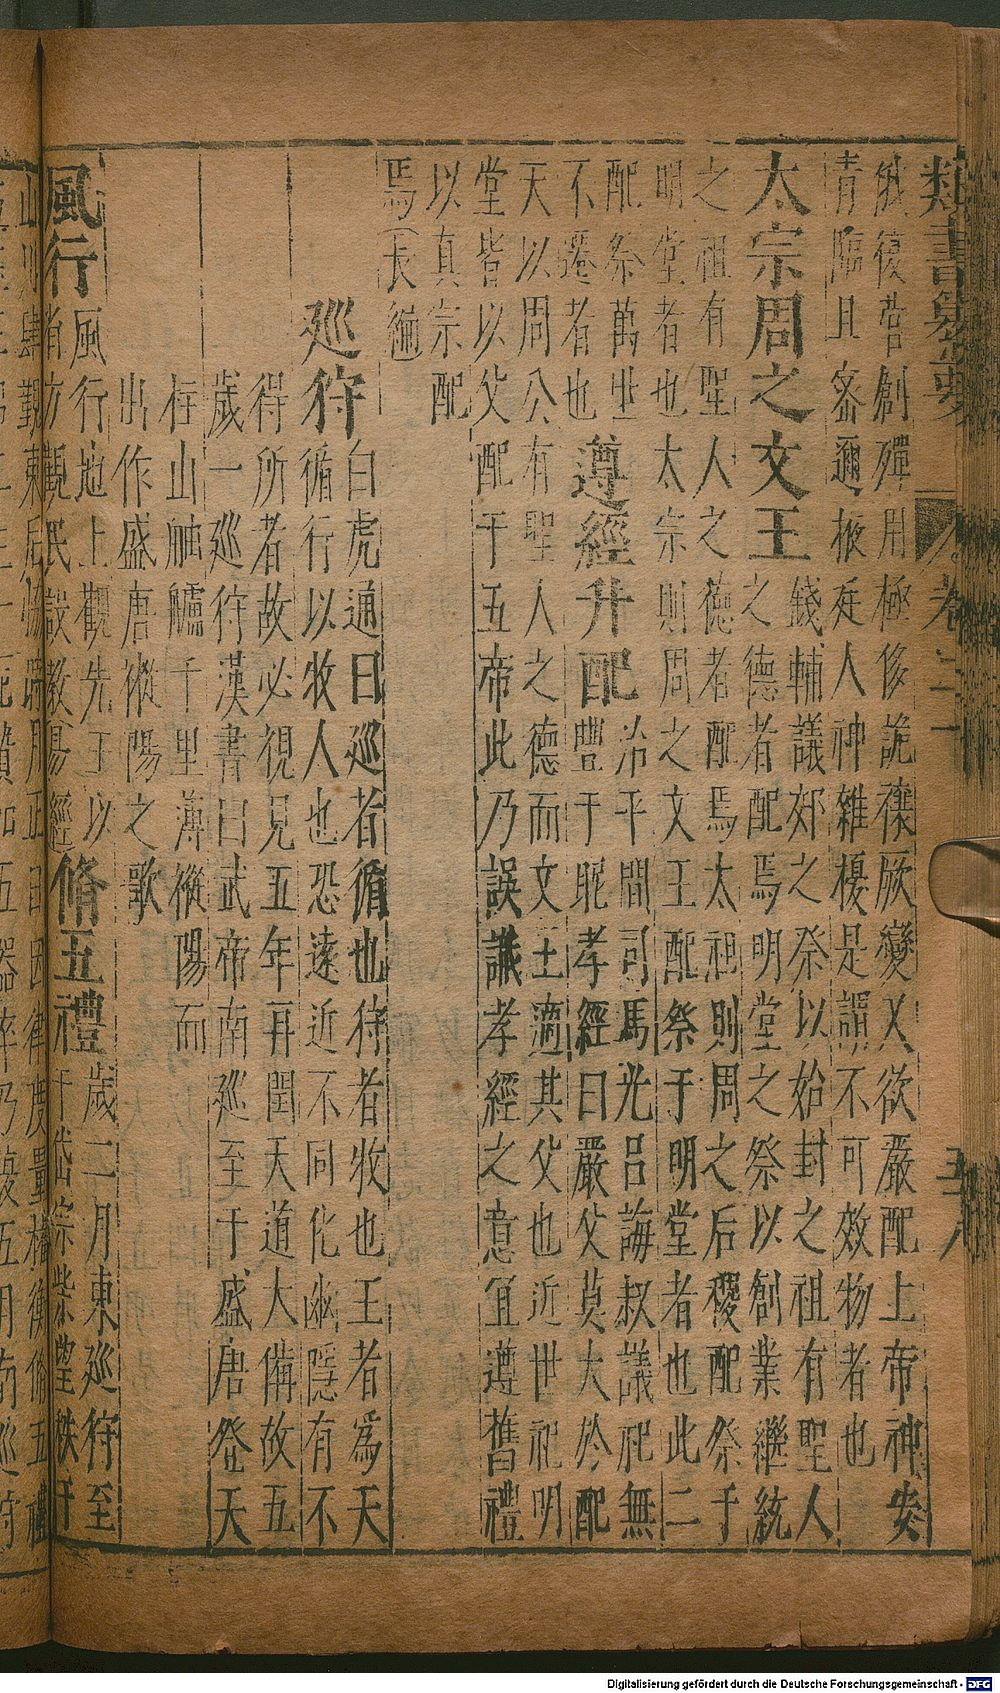 類書纂要 卷二十 五八
俄復營創殫用極侈詭禳厥變又欲嚴配上帝神安
青臨且密邇掖庭人神雜櫌是謂不可效物者也
太宗周之文王
錢輔議郊之祭以始封之祖有聖人
之德者配焉明堂之祭以創業繼統
之祖有聖人之德者配焉太祖則周之后稷配祭于
明堂者也太宗則周之文王配祭于明堂者也此二
配祭萬世
不遷者也
遵經升配
治平間司馬光呂誨叔議祀無
豐于昵孝經曰嚴父莫大於配
天以周公有聖人之德而文王適其父也近世祀明
堂皆以父配于五帝此乃誤識孝經之意宜遵舊禮
以真宗配
焉長編
巡狩
白虎通曰巡者循也狩者牧也王者為天
循行以牧人也恐遠近不同化幽隱有不
得所者故必視見五年再閏天道大備故五
歲一巡狩漢書曰武帝南巡至于盛唐登天
柱山舳艫千里薄樅陽而
出作盛唐樅陽之歌
風行
風行地上觀先王以
省方觀民設教易經
脩五禮
歲二月東巡狩至
于岱宗柴望秩于
山川肆覲東后協時月正日同律度量橋衡脩五禮
Digitalisierung gefördert durch die Deutsche Forschungsgemeinschaft - DFG